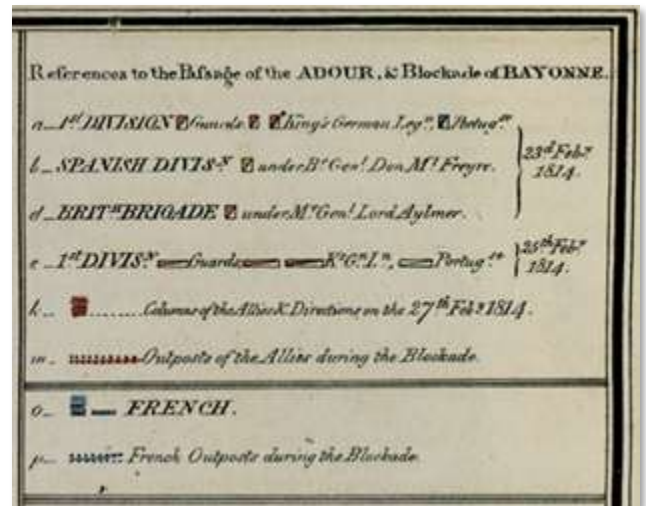 References to the Paſsage of the ADOUR, & Blockade of BAYONNE.
a_ 1st DIVISION Guards King's German Legn, Portugse
b_ SPANISH DIVISN under Bt Genl Don Ml Freyre.
23d Feby 1814.
d_ BRITH BRIGADE under Mr Genl Lord Aylmer.
e_ 1st DIVISN Guards Ks Gn Ln, Portugse
25th Feby 1814.
k_ Columns of the Allies & Directions on the 27th Feby 1814.
m_ Outposts of the Allies during the Blockade.
o_ FRENCH.
p_ French Outposts during the Blockade.